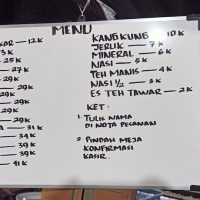 MENU
KAR — 12K
3K
25K
27K
29K
29K
29K
29K
29K
A — 31K
34K
39K
39K
41K
KANGKUNG — 10K
JERUK — 7K
MINERAL — 6K
NASI — 5K
TEH MANIS — 4K
NASI 1/2 — 3K
ES TEH TAWAR — 2K
KET :
1. TULIS NAMA
DI NOTA PESANAN
2. PINDAH MEJA
KONFIRMASI
KASIR.